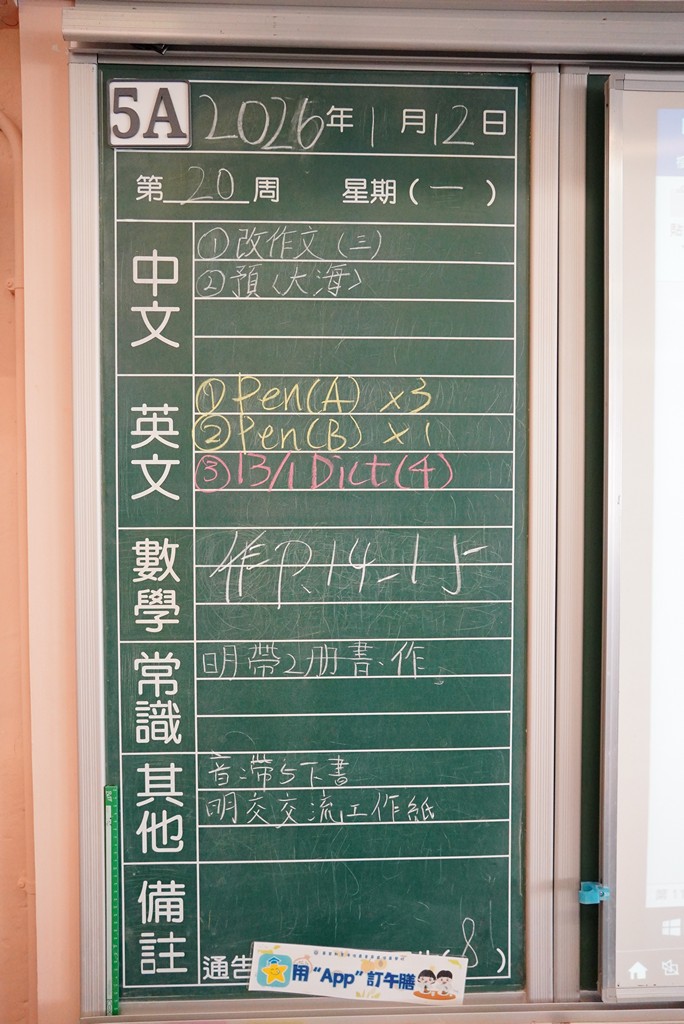 5A 2026年1月12日
第20周 星期(一)
中文
①改作文(三)
②預〈大海〉
英文
①Pen(A) x3
②Pen(B) x1
③13/1 Dict(4)
數學
作P.14-15
常識
明帶2冊書、作
其他
音:帶5下書
明交交流工作紙
備註
通告
(8)
用“App”訂午膳